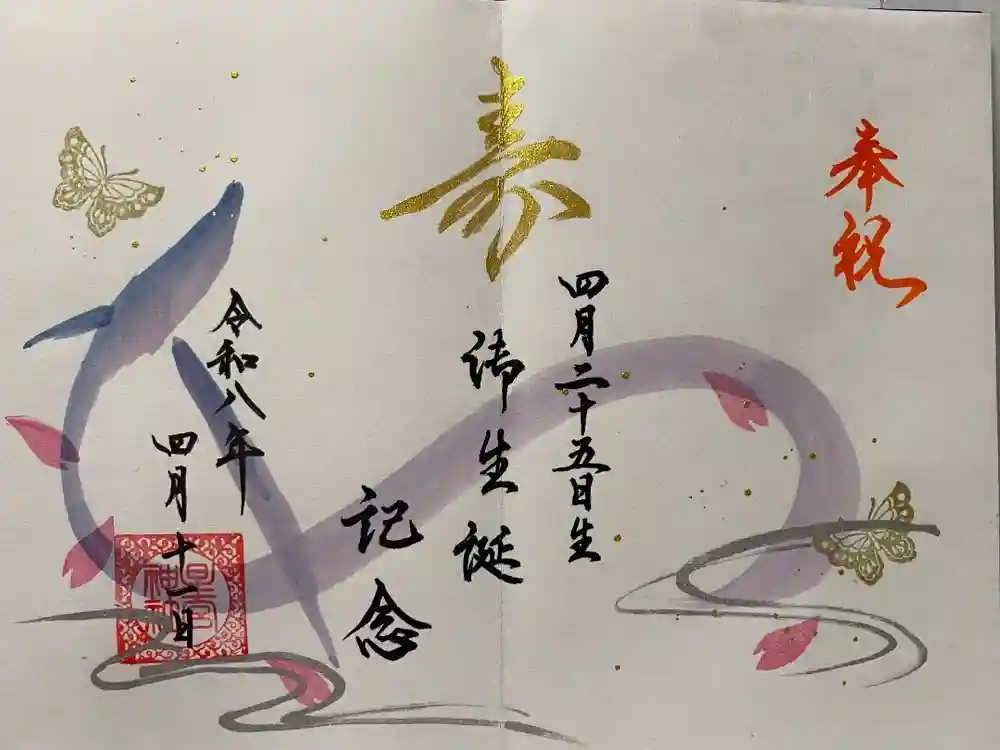 奉祝
寿
四月二十五日生
御生誕
記念
令和八年
四月十一日